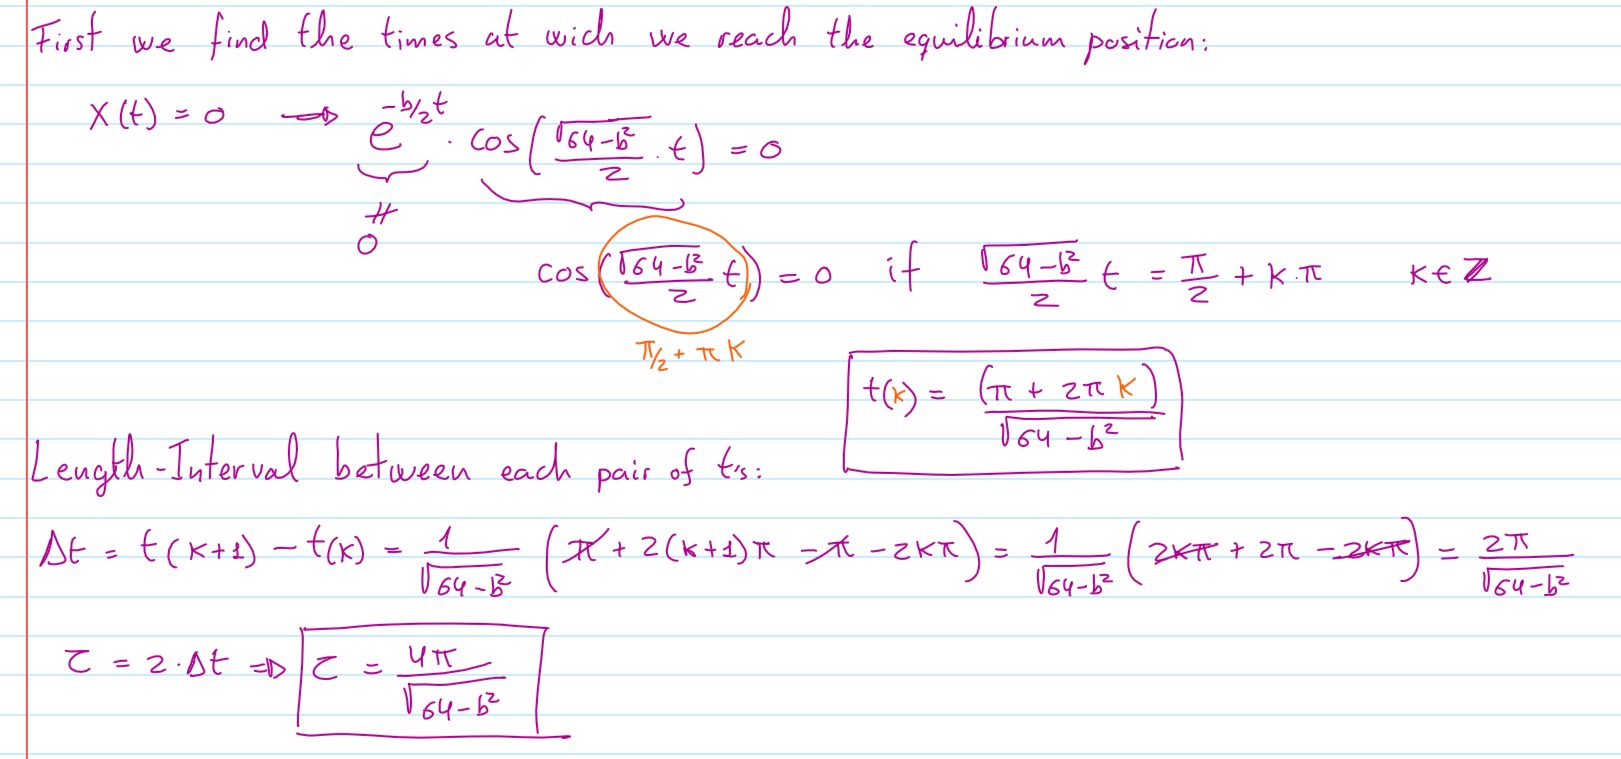 First we find the times at wich we reach the equilibrium position:
X(t) = 0 ⇒ e^(-b/2 t) · cos(√(64-b²)/2 · t) = 0
≠
0
cos(√(64-b²)/2 t) = 0 if √(64-b²)/2 t = π/2 + k·π k∈Z
π/2 + πk
t(k) = (π + 2πk)/√(64-b²)
Length-Interval between each pair of t's:
Δt = t(k+1) - t(k) = 1/√(64-b²) (π + 2(k+1)π - π - 2kπ) = 1/√(64-b²) (2kπ + 2π - 2kπ) = 2π/√(64-b²)
τ = 2·Δt ⇒ τ = 4π/√(64-b²)